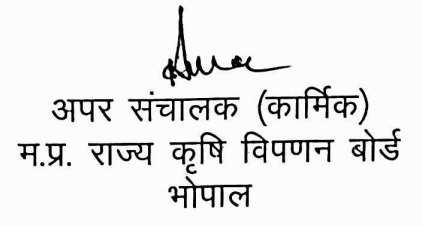 अपर संचालक (कार्मिक)
म.प्र. राज्य कृषि विपणन बोर्ड
भोपाल